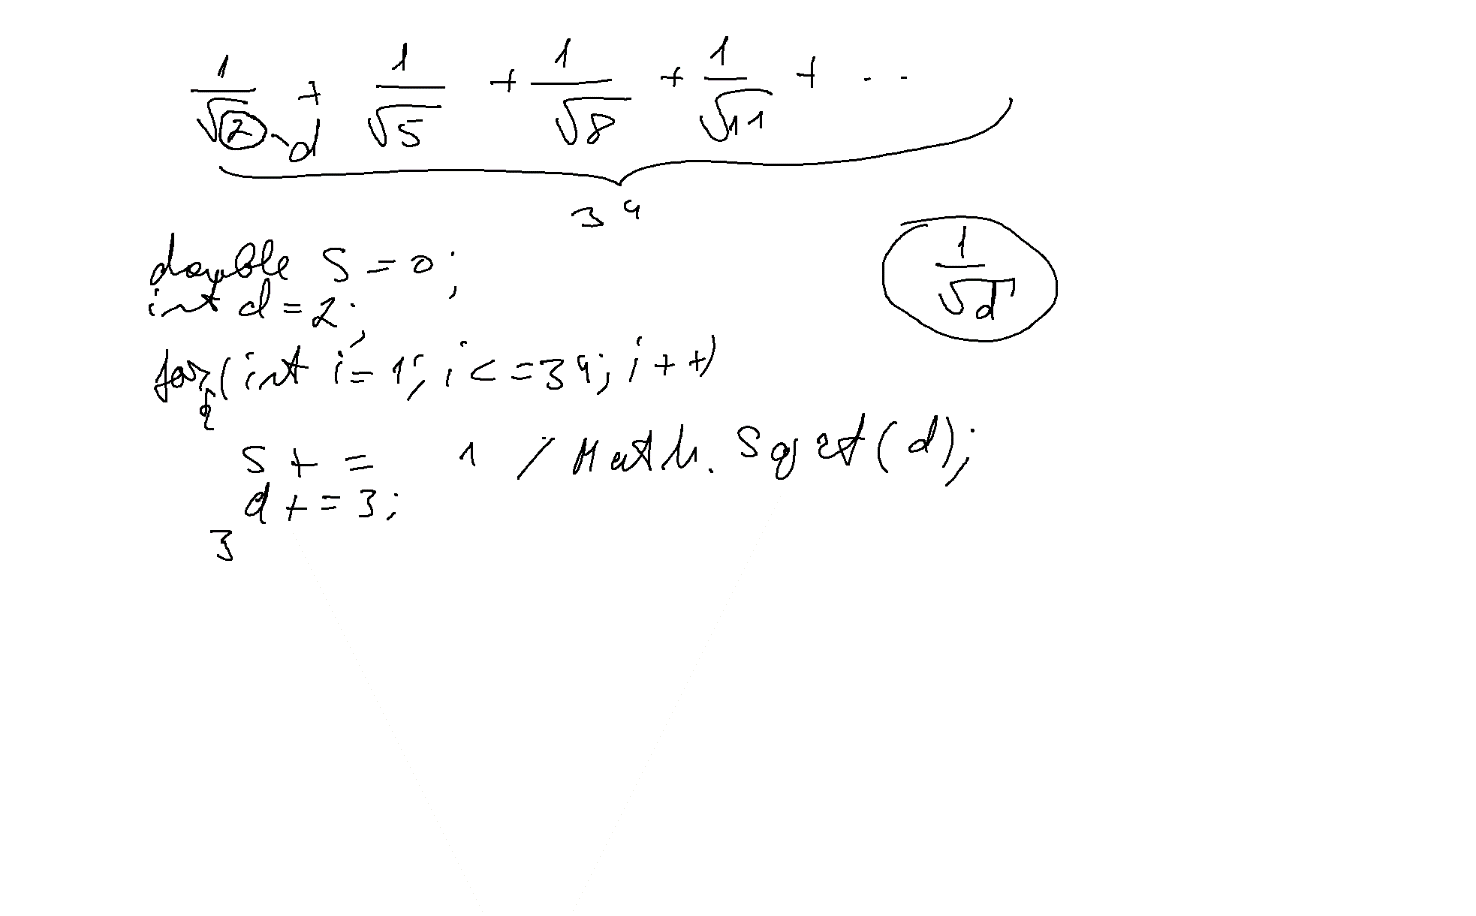 1/√2 + 1/√5 + 1/√8 + 1/√11 + ..
d
34
1/√d
double S = 0;
int d = 2;
for (int i = 1; i <= 34; i++)
{
S += 1 / Math.Sqrt(d);
d += 3;
}